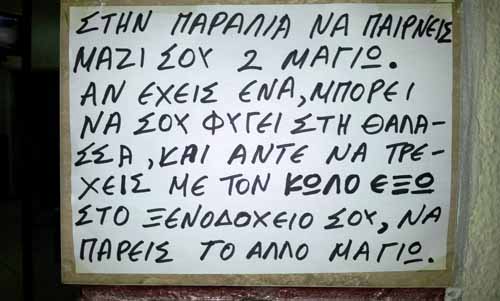 ΣΤΗΝ ΠΑΡΑΛΙΑ ΝΑ ΠΑΙΡΝΕΙΣ
ΜΑΖΙ ΣΟΥ 2 ΜΑΓΙΩ.
ΑΝ ΕΧΕΙΣ ΕΝΑ, ΜΠΟΡΕΙ
ΝΑ ΣΟΥ ΦΥΓΕΙ ΣΤΗ ΘΑΛΑ-
ΣΣΑ, ΚΑΙ ΑΝΤΕ ΝΑ ΤΡΕ-
ΧΕΙΣ ΜΕ ΤΟΝ ΚΩΛΟ ΕΞΩ
ΣΤΟ ΞΕΝΟΔΟΧΕΙΟ ΣΟΥ, ΝΑ
ΠΑΡΕΙΣ ΤΟ ΑΛΛΟ ΜΑΓΙΩ.